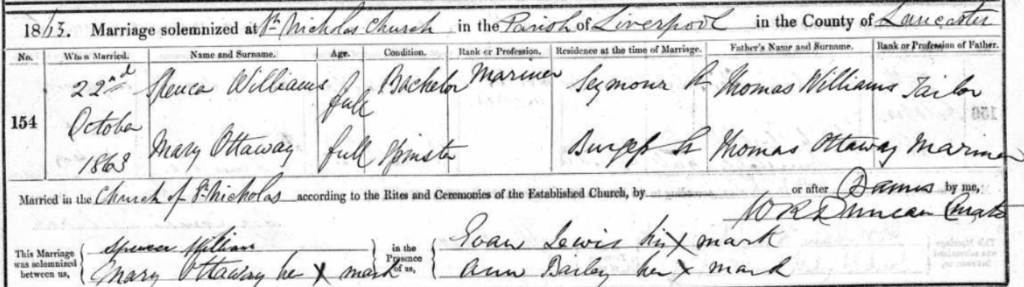 1863. Marriage solemnized at St. Nicholas Church in the Parish of Liverpool in the County of Lancaster
No. When Married. Name and Surname. Age. Condition. Rank or Profession. Residence at the time of Marriage. Father's Name and Surname. Rank or Profession of Father.
154 22nd October 1863
Spencer Williams full Bachelor Mariner Seymour St Thomas Williams Tailor
Mary Ottaway full Spinster St Thomas Ottaway Mariner
Married in the Church of St. Nicholas according to the Rites and Ceremonies of the Established Church, by or after Banns by me,
W R Duncan Curate
This Marriage was solemnized between us, Spencer William in the Presence of us, Evan Lewis his X mark
Mary Ottaway her X mark Ann Bailey her X mark